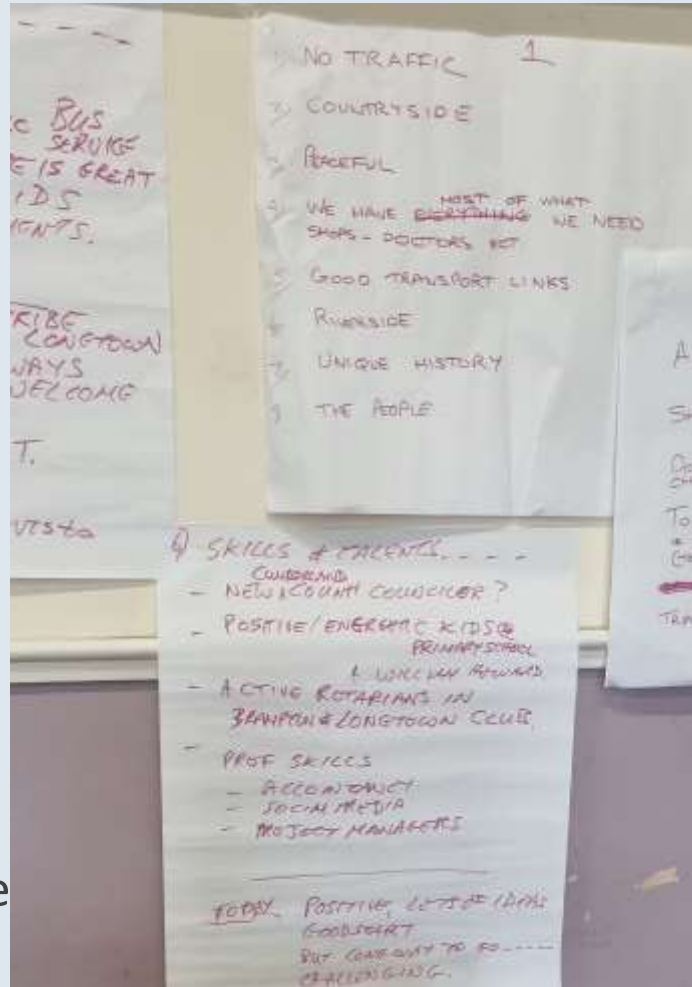 BUS
SERVICE
E IS GREAT
IDS
ENTS.
RIBE
LONGTOWN
WAYS
WELCOME
T.
1
1) NO TRAFFIC
2) COUNTRYSIDE
3) PEACEFUL
MOST OF WHAT
4) WE HAVE EVERYTHING WE NEED
SHOPS - DOCTORS
5) GOOD TRANSPORT LINKS
6 RIVERSIDE
7) UNIQUE HISTORY
THE PEOPLE
SKILLS & TALENTS - - - -
CUMBERLAND
- NEW COUNTY COUNCILER ?
- POSITIVE/ENERGETIC KIDS @
PRIMARY SCHOOL
- ACTIVE ROTARIANS IN
BRAMPTON & LONGTOWN CLUB.
- PROF SKILLS
- ACCOUNTANCY
- SOCIAL MEDIA
- PROJECT MANAGERS
TODAY POSITIVE, LOTS OF IDEAS
GOOD START
BUT LONG WAY TO GO - - - -
CHALLENGING.
A
To
e